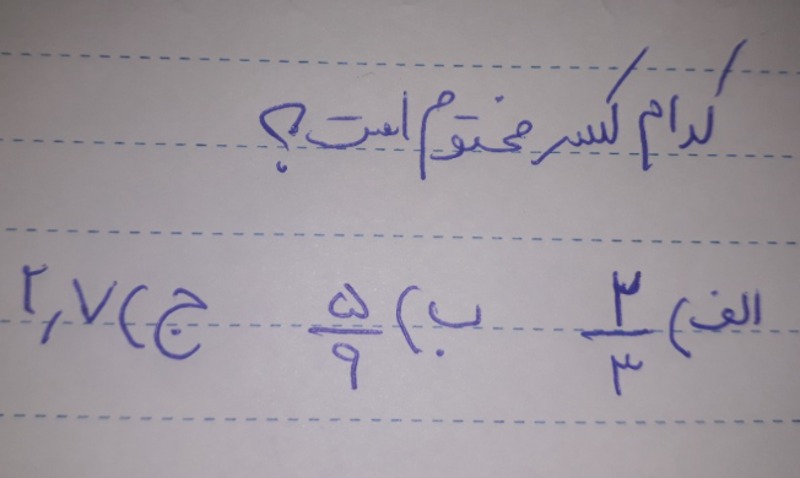 کدام کسر مختوم است؟
الف) ۳/۳ ب) ۵/۹ ج) ۲,۷